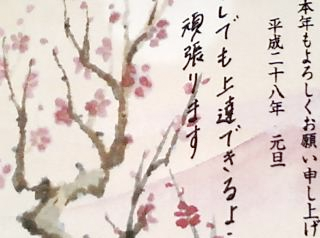 本年もよろしくお願い申し上げ
平成二十八年 元旦
しでも上達できるよ
頑張ります